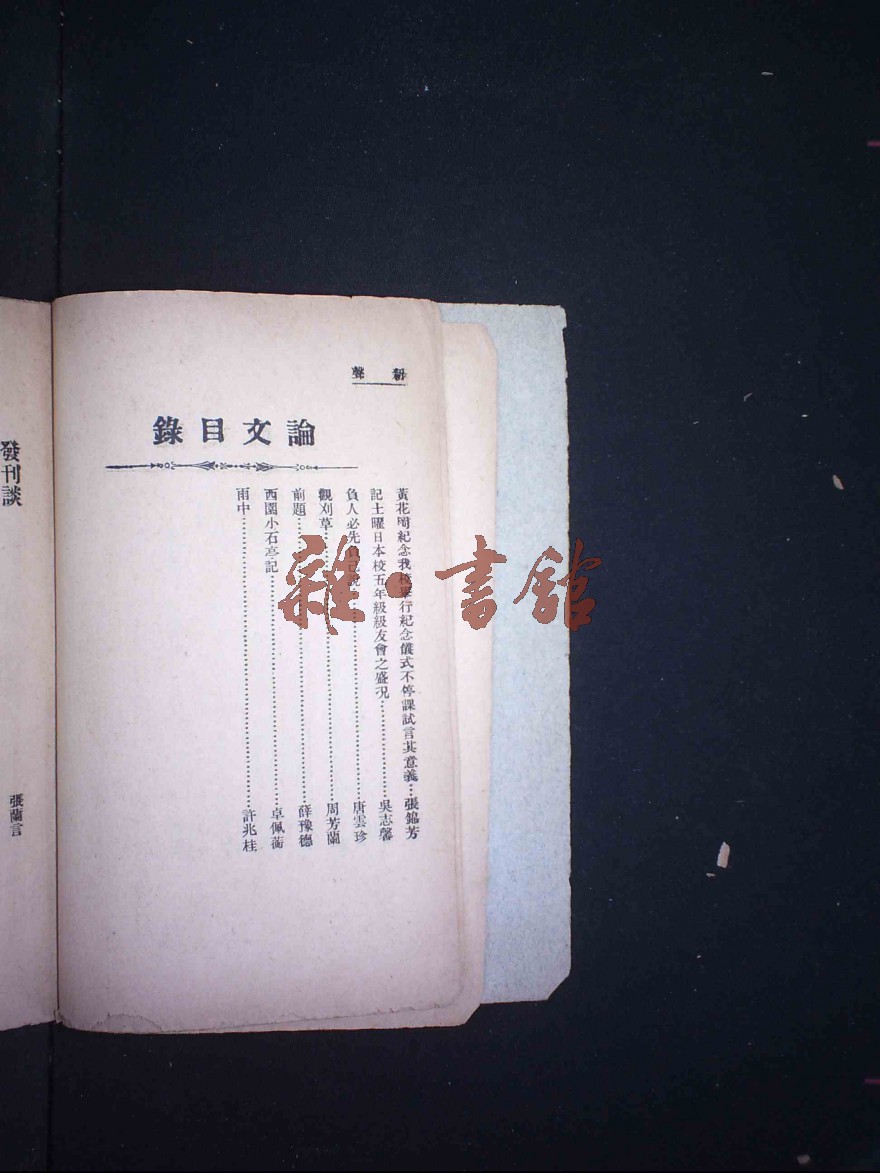 新聲
論文目錄
黃花岡紀念我校舉行紀念儀式不停課試言其意義…張錦芳
記土曜日本校五年級級友會之盛况…吳志馨
負人必先負己說…唐雲珍
觀刈草…周芳蘭
前題…薛豫德
西園小石亭記…卓佩蘅
雨中…許兆桂
發刊談
張蘭言
雜·書館